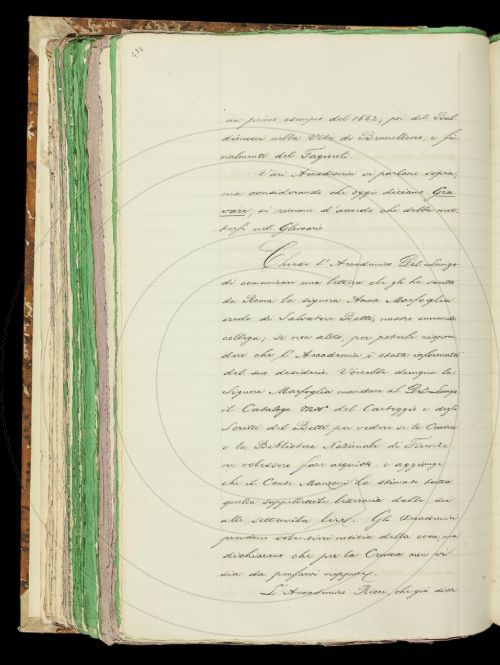 un primo esempio del 1662, poi del Bal-
dinucci nella Vita di Brunellesco, e fi-
nalmente del Fagiuoli.
Vari Accademici vi parlano sopra,
ma considerando che oggi diciamo Gra-
vare, si rimane d'accordo che debba met-
tersi nel Glossario.
Chiede l'Accademico Del-Lungo
di comunicare una lettera che gli ha scritta
da Roma la signora Anna Marfoglia
erede di Salvatore Betti, nostro onorando
collega; se non altro, per poterle rispon-
dere che l'Accademia è stata informata
del suo desiderio. Vorrebbe dunque la
Signora Marfoglia mandare al Del-Lungo
il Catalogo ms.º del Carteggio e degli
Scritti del Betti per vedere se la Crusca
o la Biblioteca Nazionale di Firenze
ne volessero fare acquisto: e aggiunge
che il Conte Manzoni ha stimato tutta
quella suppellettile letteraria dalle sei
alle settemila lire. Gli Accademici
prendono volentieri notizia della cosa, ma
dichiarano che per la Crusca non vi
sia da pensarvi neppure.
L'Accademico Ricci, che già disse